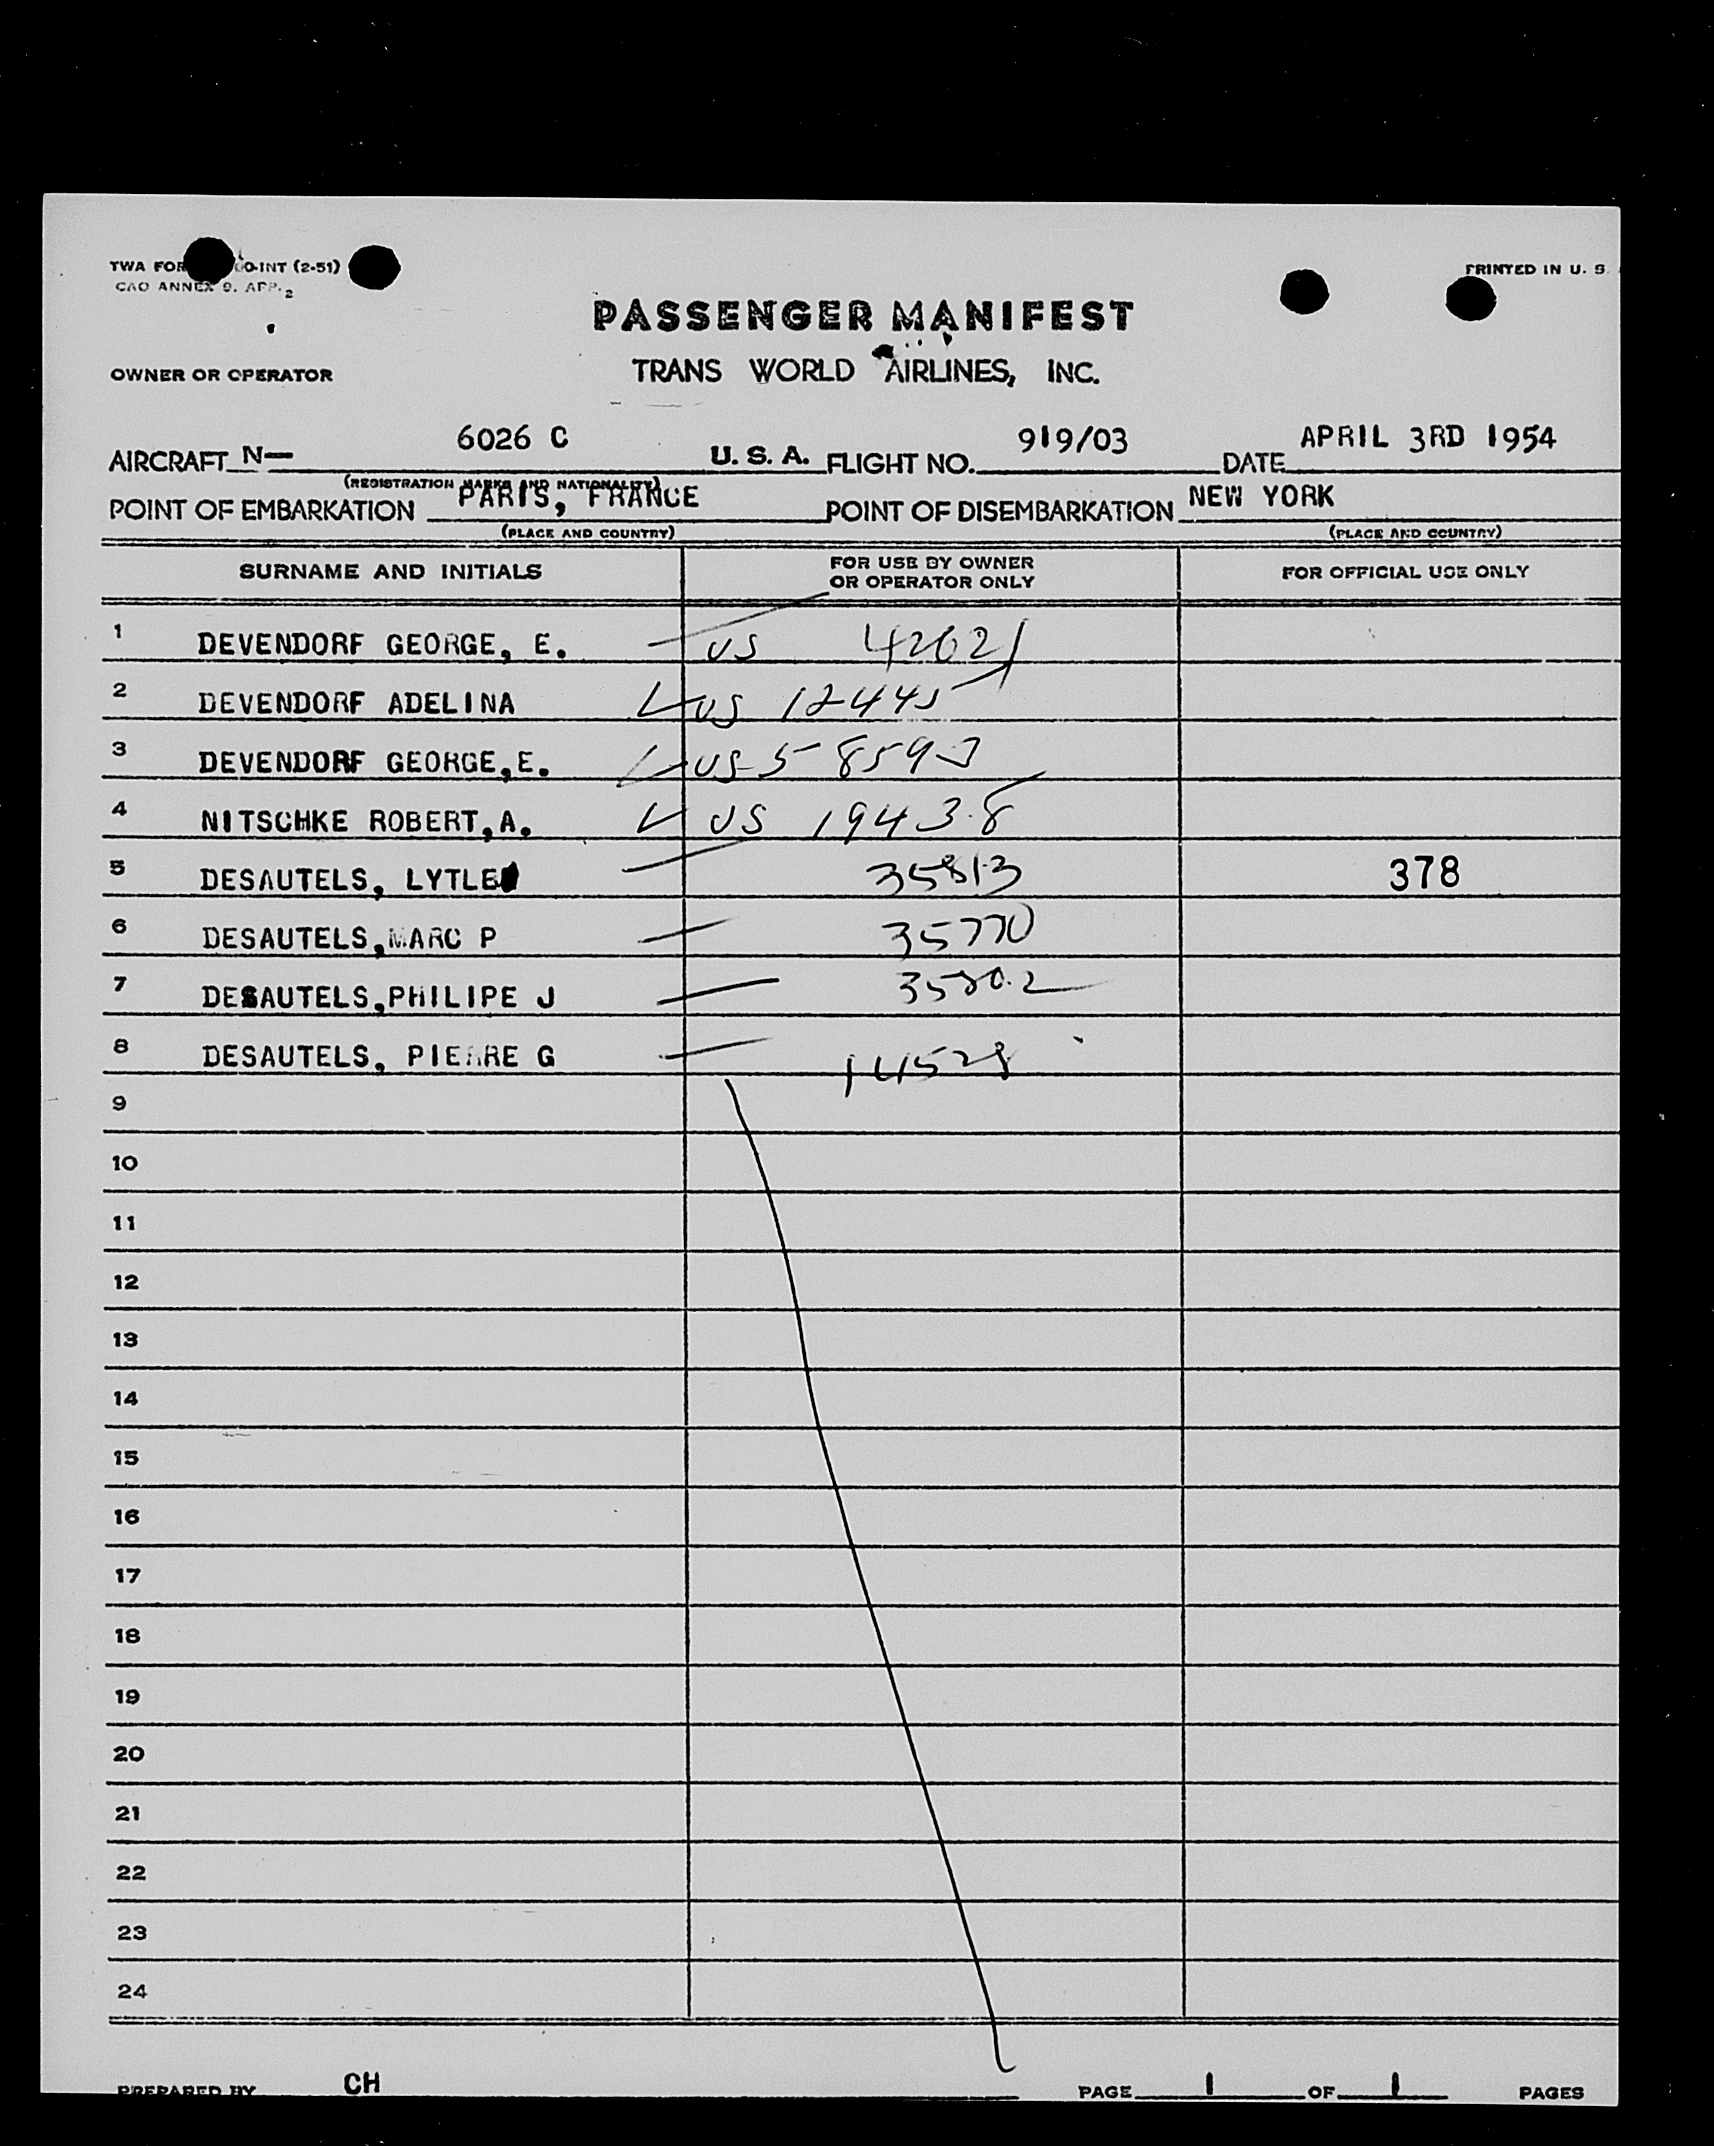 TWA FOR O-INT (2-51)
PRINTED IN U. S.
CAO ANNEX 9. APP. 2
PASSENGER MANIFEST
OWNER OR OPERATOR TRANS WORLD AIRLINES, INC.
AIRCRAFT N— 6026 C U. S. A. FLIGHT NO. 919/03 DATE APRIL 3RD 1954
(REGISTRATION MARKS AND NATIONALITY)
POINT OF EMBARKATION PARIS, FRANCE POINT OF DISEMBARKATION NEW YORK
(PLACE AND COUNTRY) (PLACE AND COUNTRY)
SURNAME AND INITIALS FOR USE BY OWNER OR OPERATOR ONLY FOR OFFICIAL USE ONLY
1 DEVENDORF GEORGE, E. US 42621
2 DEVENDORF ADELINA US 12445
3 DEVENDORF GEORGE,E. US 58593
4 NITSCHKE ROBERT,A. US 19438
5 DESAUTELS, LYTLE 35813 378
6 DESAUTELS,MARC P 35770
7 DESAUTELS,PHILIPE J 35802
8 DESAUTELS, PIERRE G 14528
9
10
11
12
13
14
15
16
17
18
19
20
21
22
23
24
PREPARED BY CH PAGE 1 OF 1 PAGES